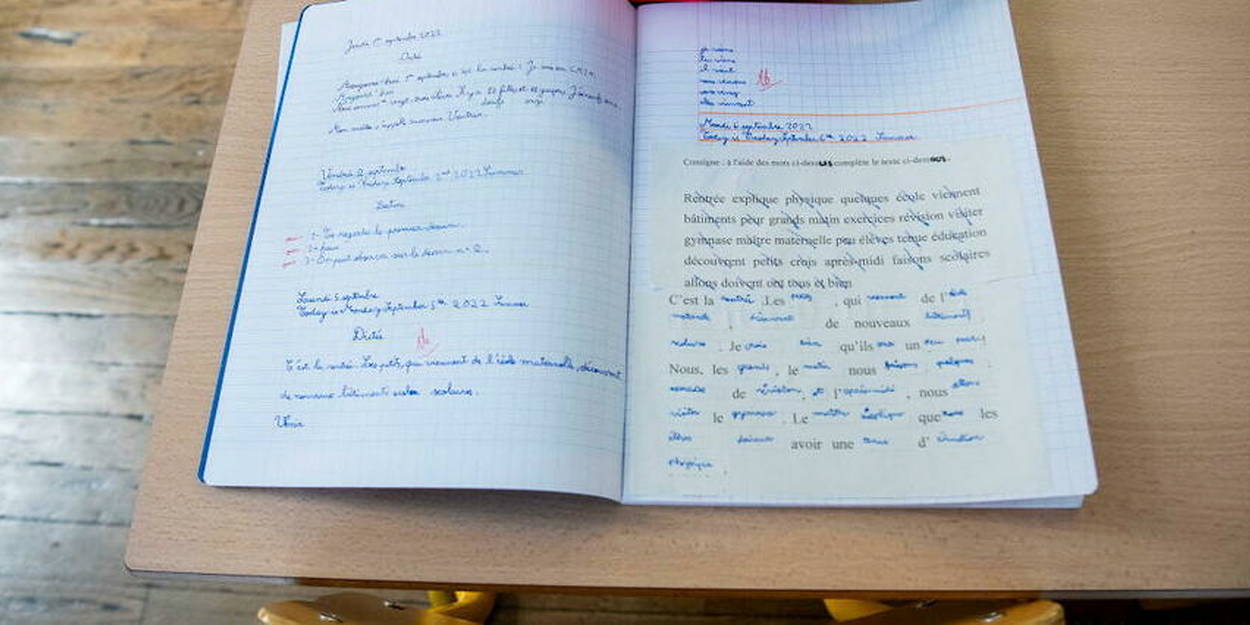 Jeudi 1er septembre 2022
Dictée
septembre c'est la rentrée. Je suis en CM2
Il y a 12 filles et 11 garçons.
Mon maître s'appelle monsieur
Vendredi 2 septembre
Today is Friday September 2nd 2022 Summer
1- Je regarde le premier dessin.
2-
3- On peut observer sur le dessin n° 2.
Lundi 5 septembre
Today is Monday September 5th 2022 Summer
Dictée
C'est la rentrée. Les petits, qui viennent de l'école maternelle, découvrent
de nouveaux bâtiments scolaires.
je viens
tu viens
il vient
nous venons
vous venez
elles viennent
Mardi 6 septembre 2022
Today is Tuesday September 6th 2022 Summer
Consigne : à l'aide des mots ci-dessus complète le texte ci-dessous.
Rentrée explique physique quelques école viennent
bâtiments peur grands matin exercices révision visiter
gymnase maître maternelle peu élèves tenue éducation
découvrent petits crois après-midi faisons scolaires
allons doivent ont tous et bien
C'est la rentrée. Les petits, qui viennent de l'école
maternelle, découvrent de nouveaux bâtiments
scolaires. Je crois bien qu'ils ont un peu peur!
Nous, les grands, le matin nous faisons quelques
exercices de révision, et l'après-midi, nous allons
visiter le gymnase. Le maître explique que tous les
élèves doivent avoir une tenue d'éducation
physique.